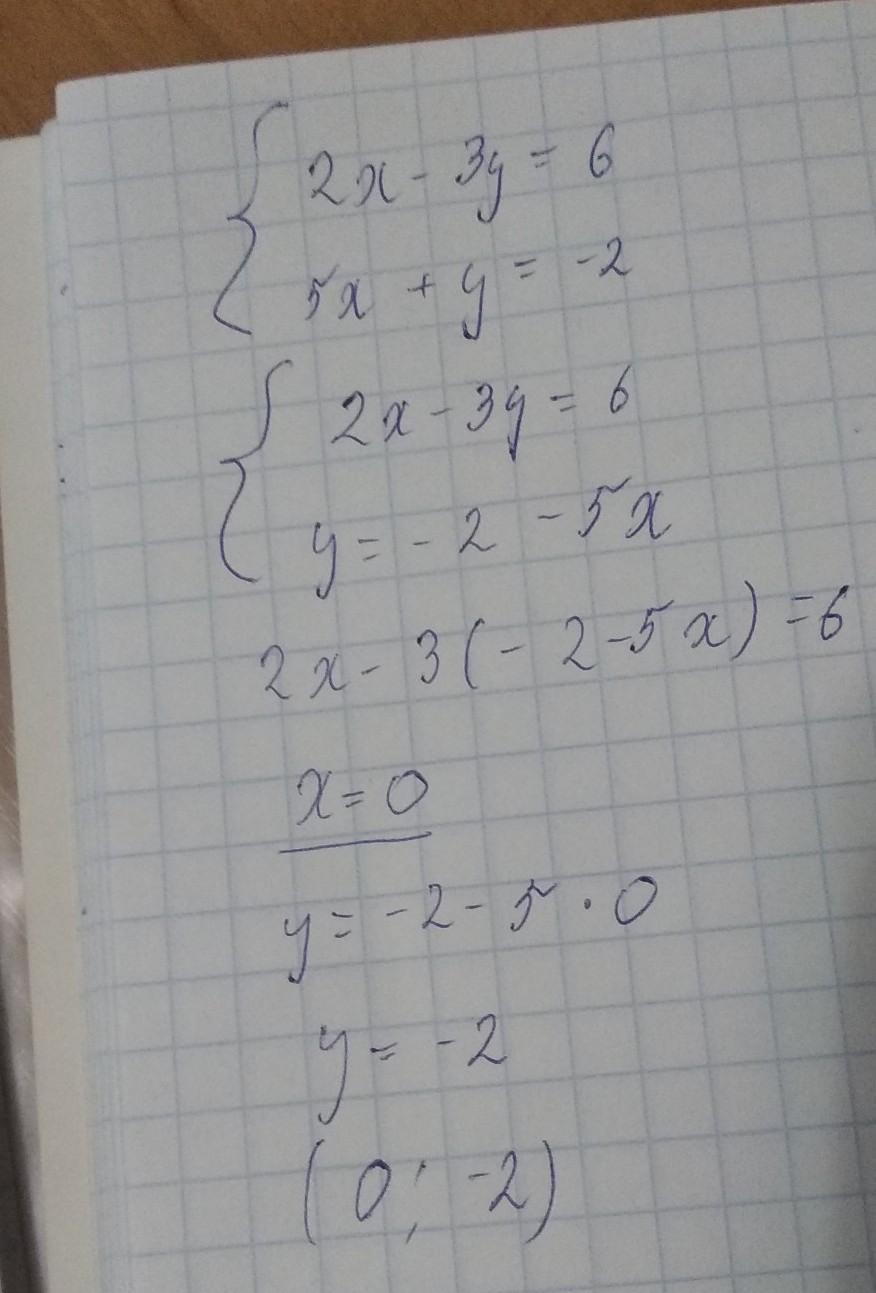 2x - 3y = 6
5x + y = -2
2x - 3y = 6
y = - 2 - 5x
2x - 3(- 2 - 5x) = 6
x = 0
y = -2 - 5 · 0
y = -2
(0; -2)